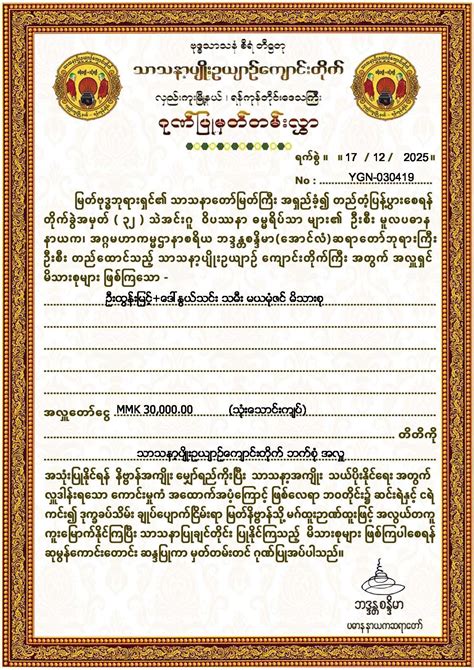 ဗုဒ္ဓသာသနံ စိရံ တိဋ္ဌတု
သာသနာ့ပျိုးဥယျာဉ်ကျောင်းတိုက်
လှည်းကူးမြို့နယ် ၊ ရန်ကုန်တိုင်းဒေသကြီး
ဂုဏ်ပြုမှတ်တမ်းလွှာ
ရက်စွဲ ။ ။ 17 / 12 / 2025။
No : YGN-030419
မြတ်ဗုဒ္ဓဘုရားရှင်၏ သာသနာတော်မြတ်ကြီး အရှည်ခံ၍ တည်တံ့ပြန့်ပွားစေရန်
တိုက်ခွဲအမှတ် ( ၃၂ ) သဲအင်းဂူ ဝိပဿနာ ဓမ္မရိပ်သာ များ၏ ဦးစီး မူလပဓာန
နာယက၊ အဂ္ဂမဟာကမ္မဋ္ဌာနာစရိယ ဘဒ္ဒန္တစန္ဒိမာ(အောင်လံ)ဆရာတော်ဘုရားကြီး
ဦးစီး တည်ထောင်သည့် သာသနာ့ပျိုးဥယျာဉ် ကျောင်းတိုက်ကြီး အတွက် အလှူရှင်
မိသားစုများ ဖြစ်ကြသော -
ဦးထွန်းမြင့်+ဒေါ်နွယ်သင်း သမီး မယမုံဇင် မိသားစု
အလှူတော်ငွေ MMK 30,000.00 (သုံးသောင်းကျပ်)
တိတိကို
သာသနာ့ပျိုးဥယျာဉ်ကျောင်းတိုက် ဘက်စုံ အလှူ
အသုံးပြုနိုင်ရန် နိဗ္ဗာန်အကျိုး မျှော်ရည်ကိုးပြီး သာသနာ့အကျိုး သယ်ပိုးနိုင်ရေး အတွက်
လှူဒါန်းရသော ကောင်းမှုကံ အထောက်အပံ့ကြောင့် ဖြစ်လေရာ ဘဝတိုင်း၌ ဆင်းရဲနှင့် ငရဲ
ကင်း၍ ဒုက္ခခပ်သိမ်း ချုပ်ပျောက်ငြိမ်းရာ မြတ်နိဗ္ဗာန်သို့ မဂ်ထူးဉာဏ်ထူးဖြင့် အလွယ်တကူ
ကူးမြောက်နိုင်ကြပြီး သာသနာပြုချင်တိုင်း ပြုနိုင်ကြသည့် မိသားစုများ ဖြစ်ကြပါစေရန်
ဆုမွန်ကောင်းတောင်း ဆန္ဒပြုကာ မှတ်တမ်းတင် ဂုဏ်ပြုအပ်ပါသည်။
ဘဒ္ဒန္တစန္ဒိမာ
ပဓာနနာယကဆရာတော်